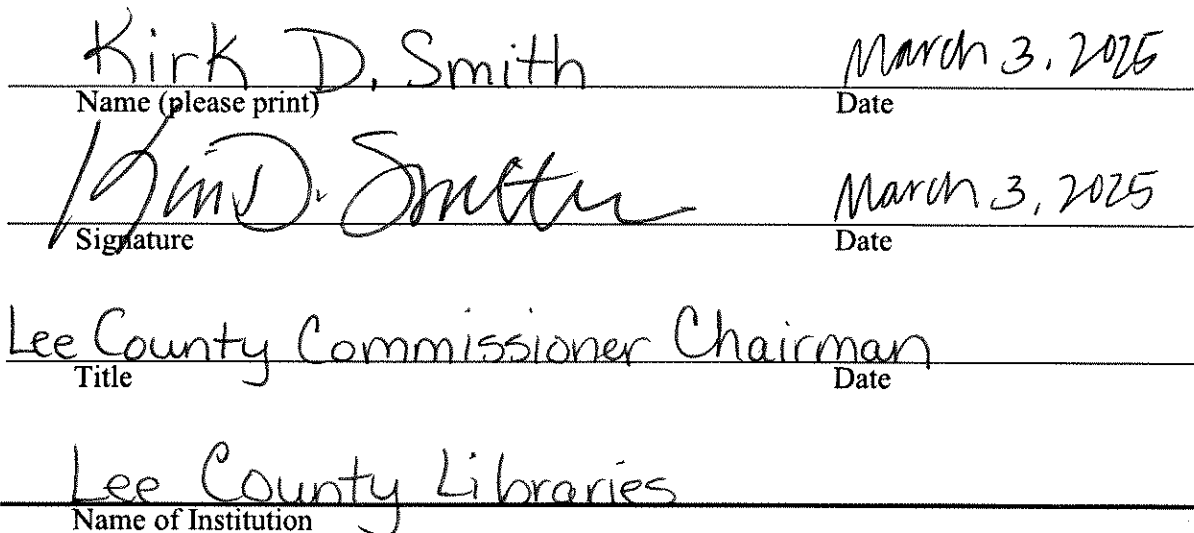 Kirk D. Smith March 3, 2025
Name (please print) Date
Kirk D. Smith March 3, 2025
Signature Date
Lee County Commissioner Chairman
Title Date
Lee County Libraries
Name of Institution